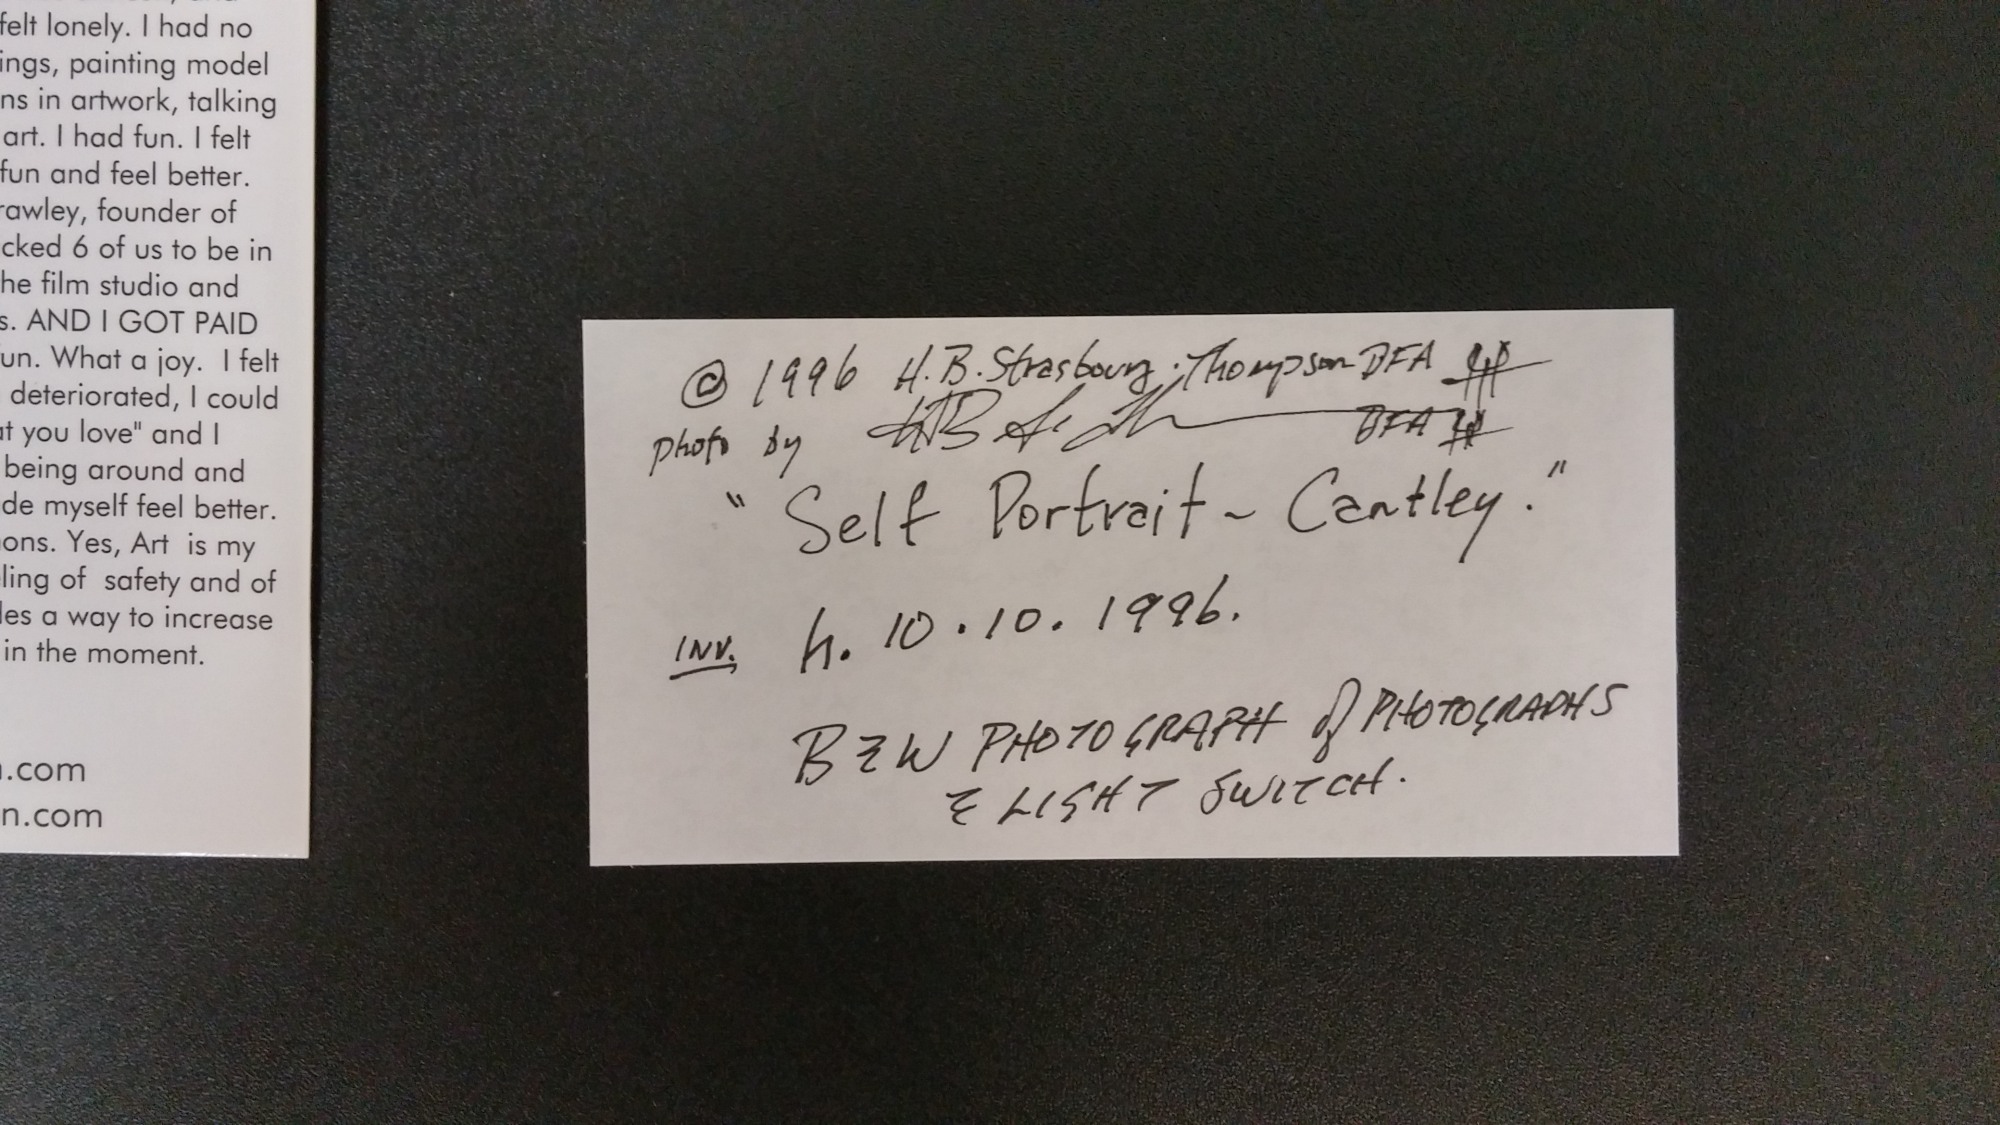 felt lonely. I had no
ings, painting model
ns in artwork, talking
art. I had fun. I felt
fun and feel better.
rawley, founder of
cked 6 of us to be in
he film studio and
s. AND I GOT PAID
un. What a joy. I felt
deteriorated, I could
at you love" and I
being around and
de myself feel better.
ons. Yes, Art is my
ling of safety and of
les a way to increase
in the moment.
.com
n.com
© 1996 H.B. Strasbourg-Thompson BFA
photo by BFA
"Self Portrait ~ Cantley."
INV. h. 10.10.1996.
B & W PHOTOGRAPH of PHOTOGRAPHS
& LIGHT SWITCH.